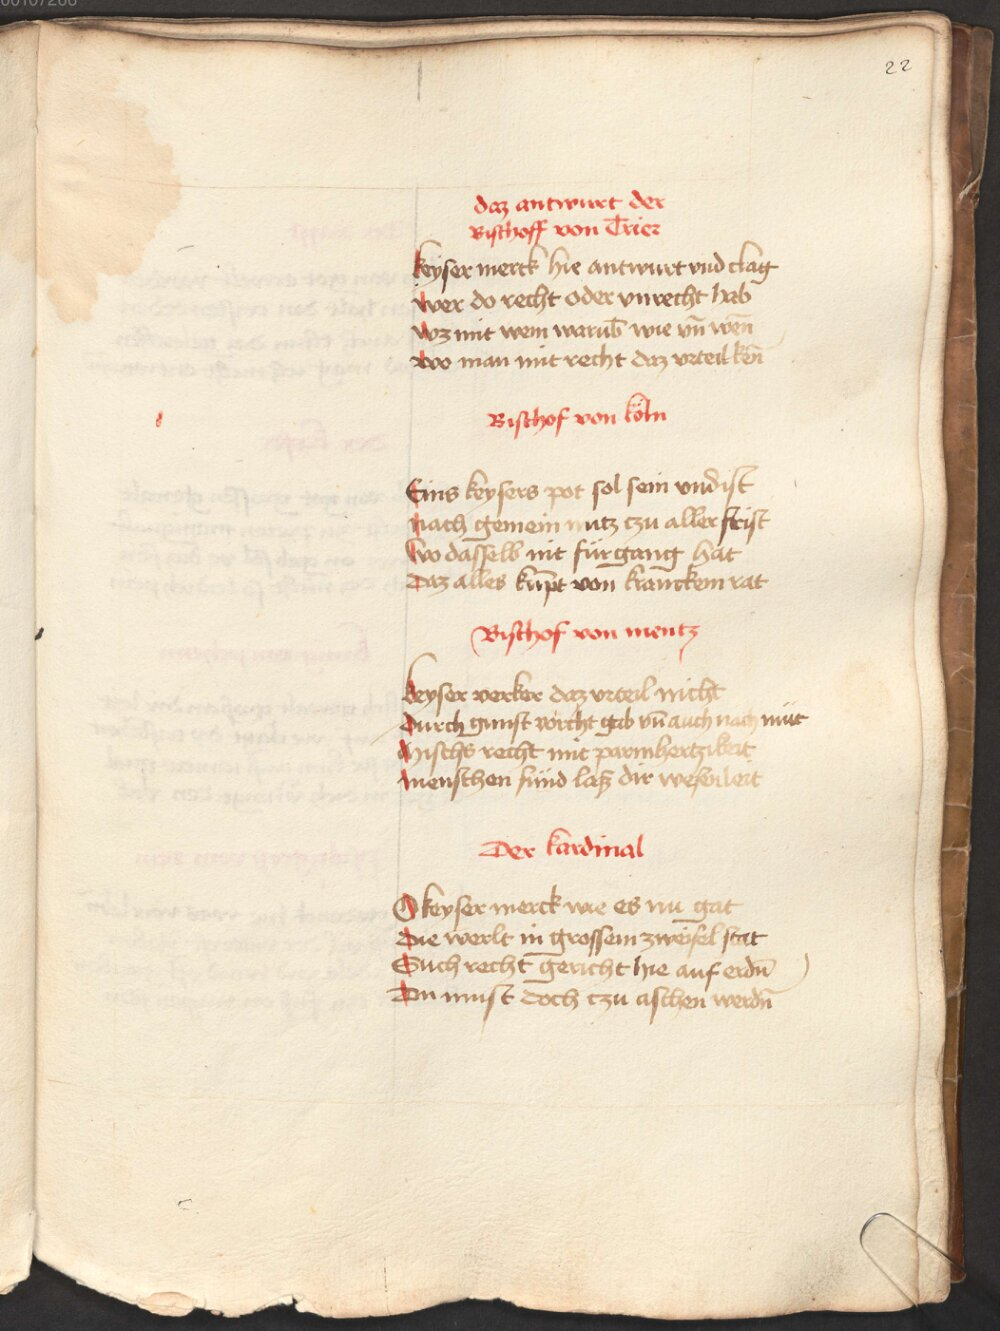 22
daz antwurt der
Bischoff von Trier
keyser merck hie antwurt vnd clag
wer do recht oder vnrecht hab
wz mit wem warūb wie vn̄ wen̄
wo man mit recht daz vrteil ken̄
Bischof von köln
Eins keysers pot sol sein vnd ist
nach gemein nutz czu aller frist
wo dasselb nit fürgang hat
Daz alles kūpt von kranckem rat
Bischof von mentz
keyser verker daz vrteil nicht
Durch gunst vorcht gab vn̄ auch nach müt
Mischs recht mit parmhertzikeit
menschen sünd laß dir
Der kardinal
O keyser merck wie es nu gat
Die werlt in grossem zweifel stat
Such recht gericht hie auf erdn̄
Du must doch czu aschen werdn̄